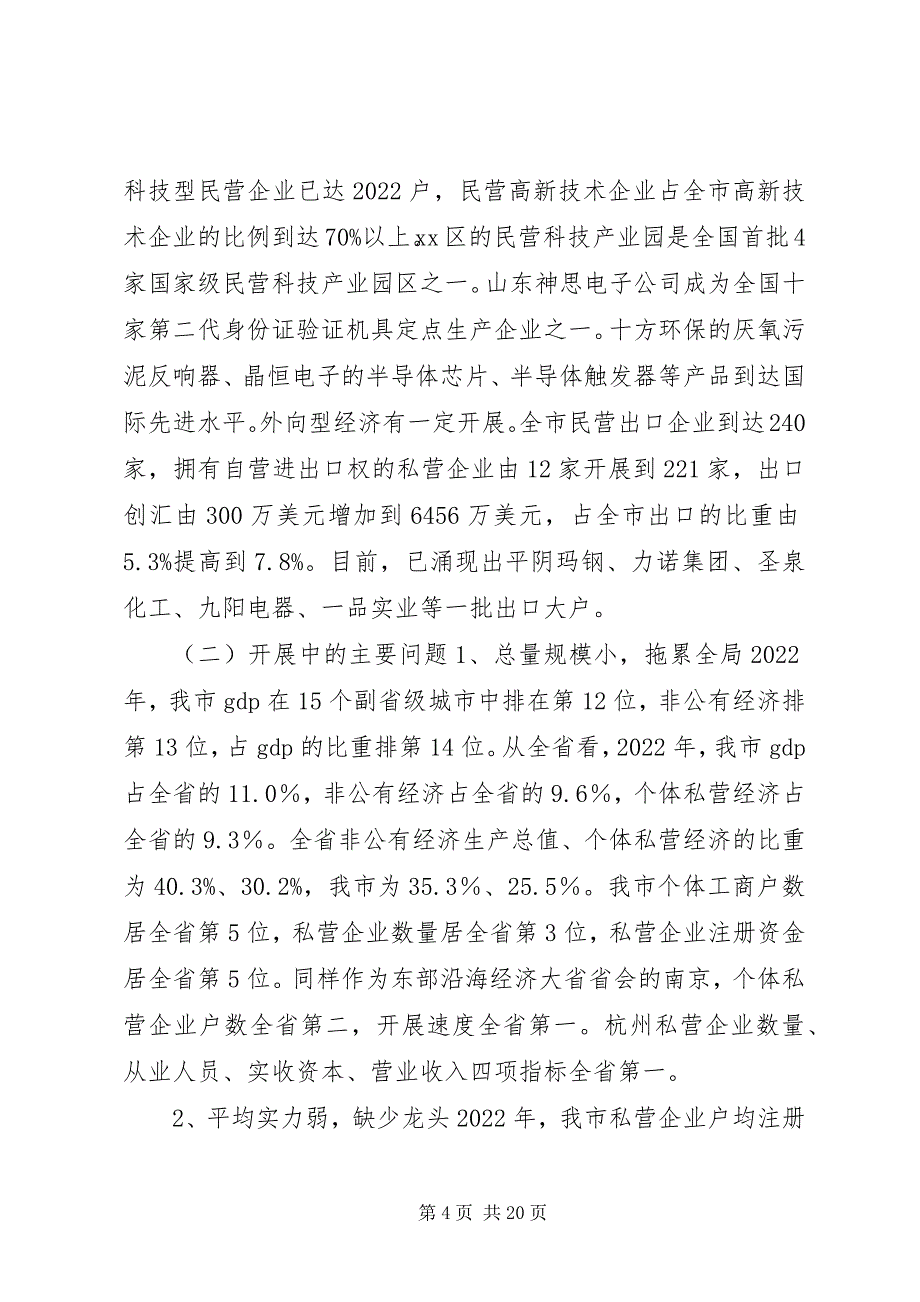 科技型民营企业已达 2022 户，民营高新技术企业占全市高新技
术企业的比例到达 70%以上。xx 区的民营科技产业园是全国首批 4
家国家级民营科技产业园区之一。山东神思电子公司成为全国十
家第二代身份证验证机具定点生产企业之一。十方环保的厌氧污
泥反响器、晶恒电子的半导体芯片、半导体触发器等产品到达国
际先进水平。外向型经济有一定开展。全市民营出口企业到达 240
家，拥有自营进出口权的私营企业由 12 家开展到 221 家，出口
创汇由 300 万美元增加到 6456 万美元，占全市出口的比重由
5.3%提高到 7.8%。目前，已涌现出平阴玛钢、力诺集团、圣泉
化工、九阳电器、一品实业等一批出口大户。
（二）开展中的主要问题 1、总量规模小，拖累全局 2022
年，我市 gdp 在 15 个副省级城市中排在第 12 位，非公有经济排
第 13 位，占 gdp 的比重排第 14 位。从全省看，2022 年，我市 gdp
占全省的 11.0％，非公有经济占全省的 9.6％，个体私营经济占
全省的 9.3％。全省非公有经济生产总值、个体私营经济的比重
为 40.3%、30.2%，我市为 35.3％、25.5％。我市个体工商户数
居全省第 5 位，私营企业数量居全省第 3 位，私营企业注册资金
居全省第 5 位。同样作为东部沿海经济大省省会的南京，个体私
营企业户数全省第二，开展速度全省第一。杭州私营企业数量、
从业人员、实收资本、营业收入四项指标全省第一。
2、平均实力弱，缺少龙头 2022 年，我市私营企业户均注册
第 4 页 共 20 页